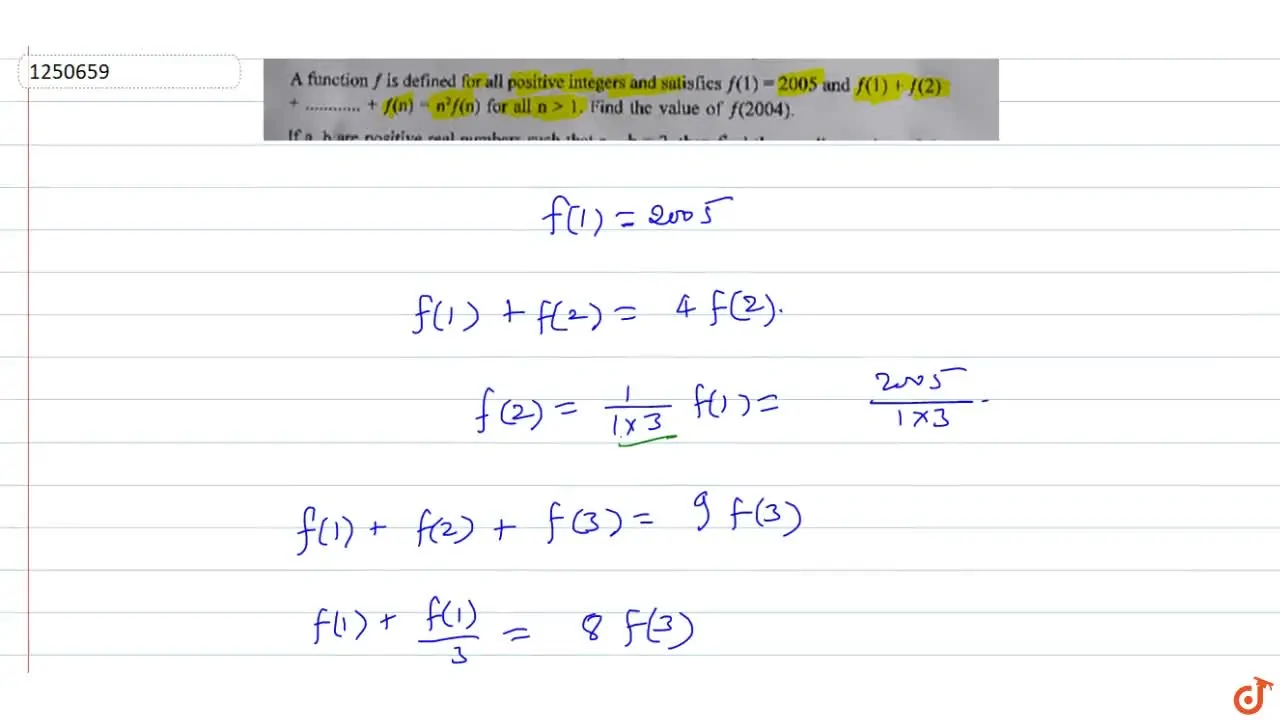 1250659
A function f is defined for all positive integers and satisfies f(1) = 2005 and f(1) + f(2)
+ ............ + f(n) = n²f(n) for all n > 1. Find the value of f(2004).
If a, b are positive real numbers such that
f(1) = 2005
f(1) + f(2) = 4 f(2).
f(2) = 1/(1×3) f(1) = 2005/(1×3)
f(1) + f(2) + f(3) = 9 f(3)
f(1) + f(1)/3 = 8 f(3)